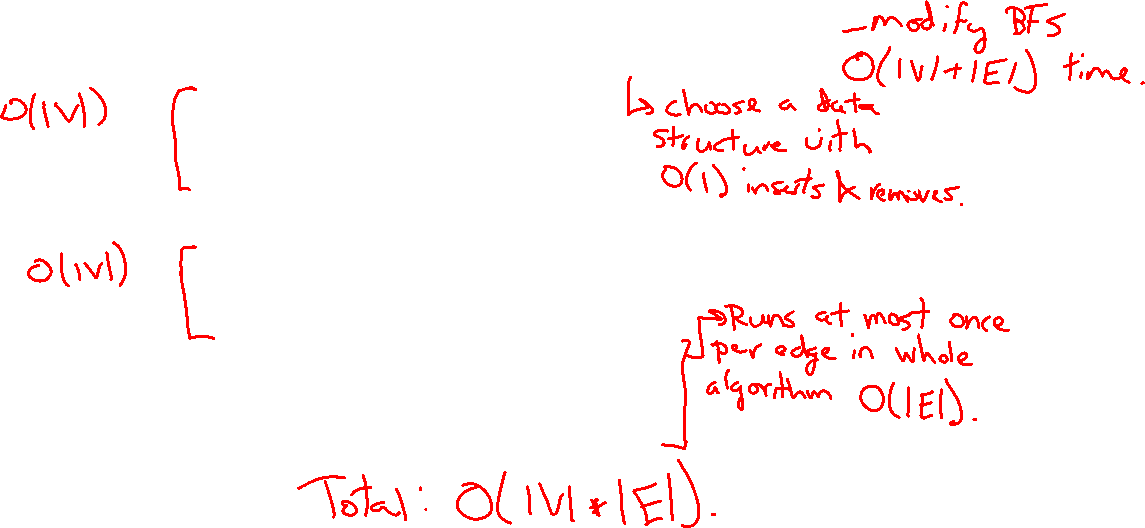 – modify BFS
O(|V|+|E|) time.
O(|V|)
↳ choose a data
structure with
O(1) inserts & removes.
O(|V|)
→ Runs at most once
per edge in whole
algorithm O(|E|).
Total: O(|V| * |E|).